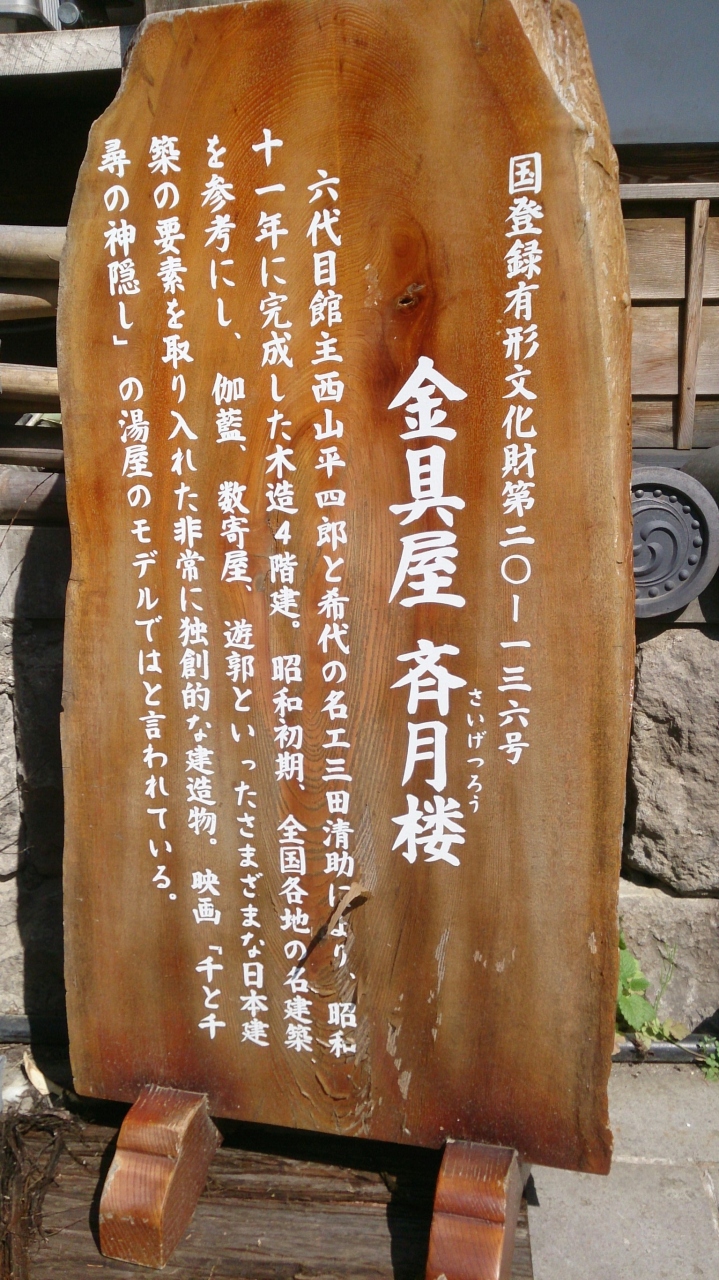 国登録有形文化財第二〇ー一三六号
金具屋 斉月楼
さいげつろう
六代目館主西山平四郎と希代の名工三田清助により、昭和
十一年に完成した木造4階建。昭和初期、全国各地の名建築
を参考にし、伽藍、数寄屋、遊郭といったさまざまな日本建
築の要素を取り入れた非常に独創的な建造物。映画「千と千
尋の神隠し」の湯屋のモデルではと言われている。